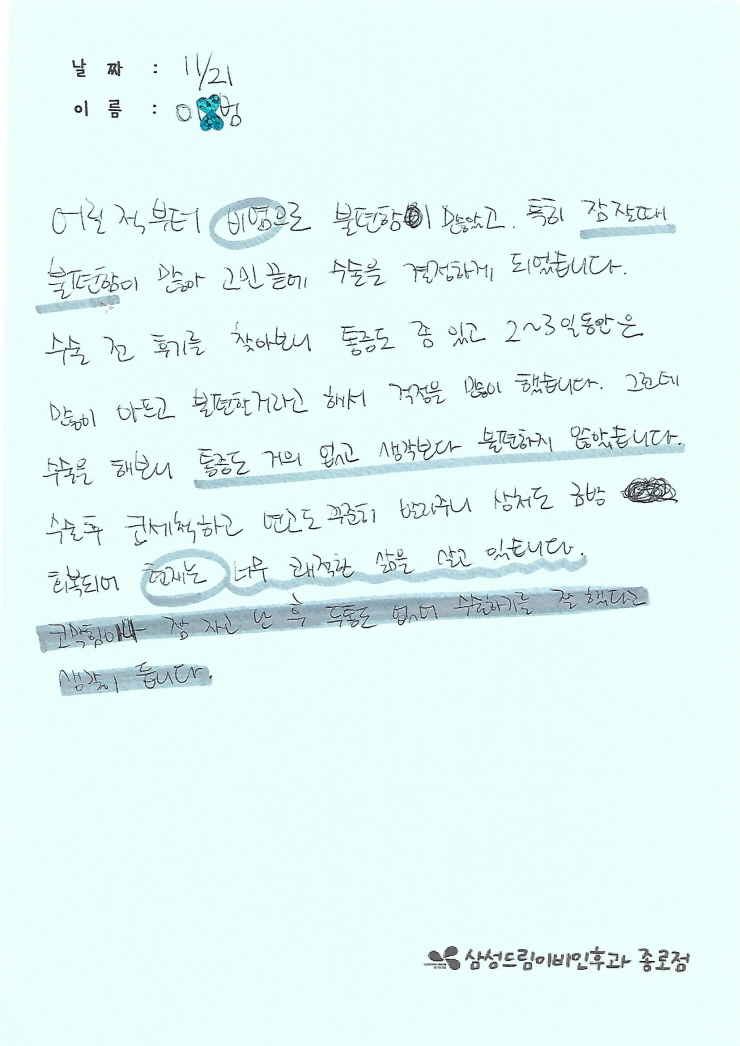 날 짜 : 11/21
이 름 : 이 형
어릴 적부터 비염으로 불편함이 많았고. 특히 잠잘때
불편함이 많아 고민끝에 수술을 결정하게 되었습니다.
수술 전 후기를 찾아보니 통증도 좀 있고 2~3일동안은
많이 아프고 불편한거라고 해서 걱정을 많이 했습니다. 그런데
수술을 해보니 통증도 거의 없고 생각보다 불편하지 않았습니다.
수술후 코세척하고 연고도 꾸준히 발라주니 상처도 금방
회복되어 현재는 너무 쾌적한 삶을 살고 있습니다.
코막힘이나 잠 자고 난 후 두통도 없어 수술하기를 잘 했다고
생각이 듭니다.
삼성드림이비인후과 종로점